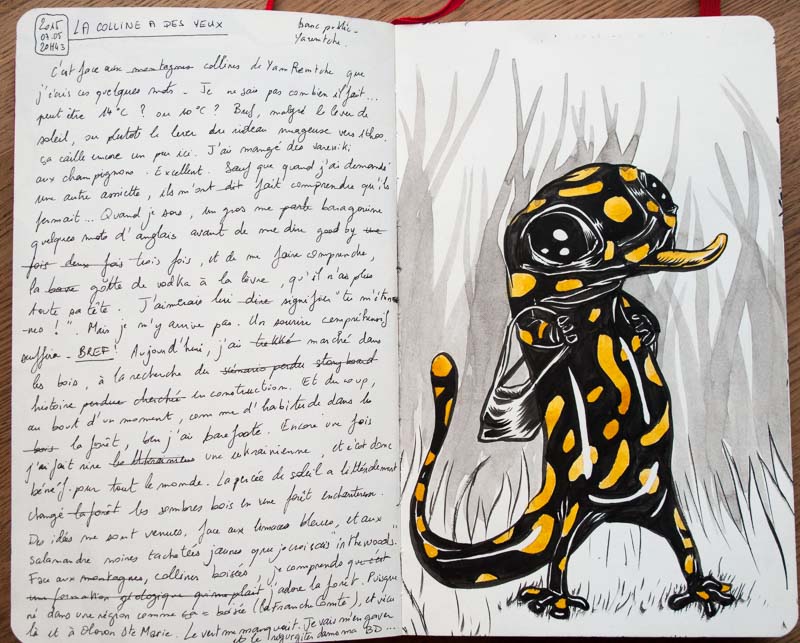 2015
07.05
20H43
LA COLLINE A DES YEUX
banc public -
Yaremtche.
C'est face aux montagnes collines de Yam Remtche que
j'écris ces quelques mots - Je ne sais pas combien il fait...
peut être 14°C ? ou 10°C ? Bref, malgré le lever de
soleil, ou plutôt le lever du rideau nuageuse vers 17h00.
ça caille encore un peu ici. J'ai mangé des vareniki
aux champignons. Excellent. Sauf que quand j'ai demandé
une autre assiette, ils m'ont dit fait comprendre qu'ils
fermait... Quand je sors, un gros me parle baragouine
quelques mots d'anglais avant de me dire good by une
fois deux fois trois fois, et de me faire comprendre,
la bave goutte de vodka à la lèvre, qu'il n'a plus
toute sa tête. J'aimerais lui dire signifier "tu m'étonnes
!". Mais je m'y arrive pas. Un sourire compréhensif
suffira - BREF ! Aujourd'hui, j'ai trekké marché dans
les bois, à la recherche du scénario perdu storyboard
histoire perdue cherchée en construction. Et du coup,
au bout d'un moment, comme d'habitude dans les
bois la forêt, ben j'ai barefooté. Encore une fois
j'ai fait rire les Ukrainiens une ukrainienne, et c'est donc
bénéf. pour tout le monde. La percée de soleil a littéralement
changé la forêt les sombres bois en une forêt enchanteresse.
Des idées me sont venues, face aux limaces bleues, et aux
salamandre noires tachetées jaunes que je croisais "in the woods".
Face aux montagnes, collines boisées, je comprends que c'est
une formation géologique qui me plait j'adore la forêt. Puisque
né dans une région comme boisée (la Franche Comté), et vécu
là et à Oloron Ste Marie. Le vert me manquait. Je vais m'en gaver
et le régurgiter dans ma BD...